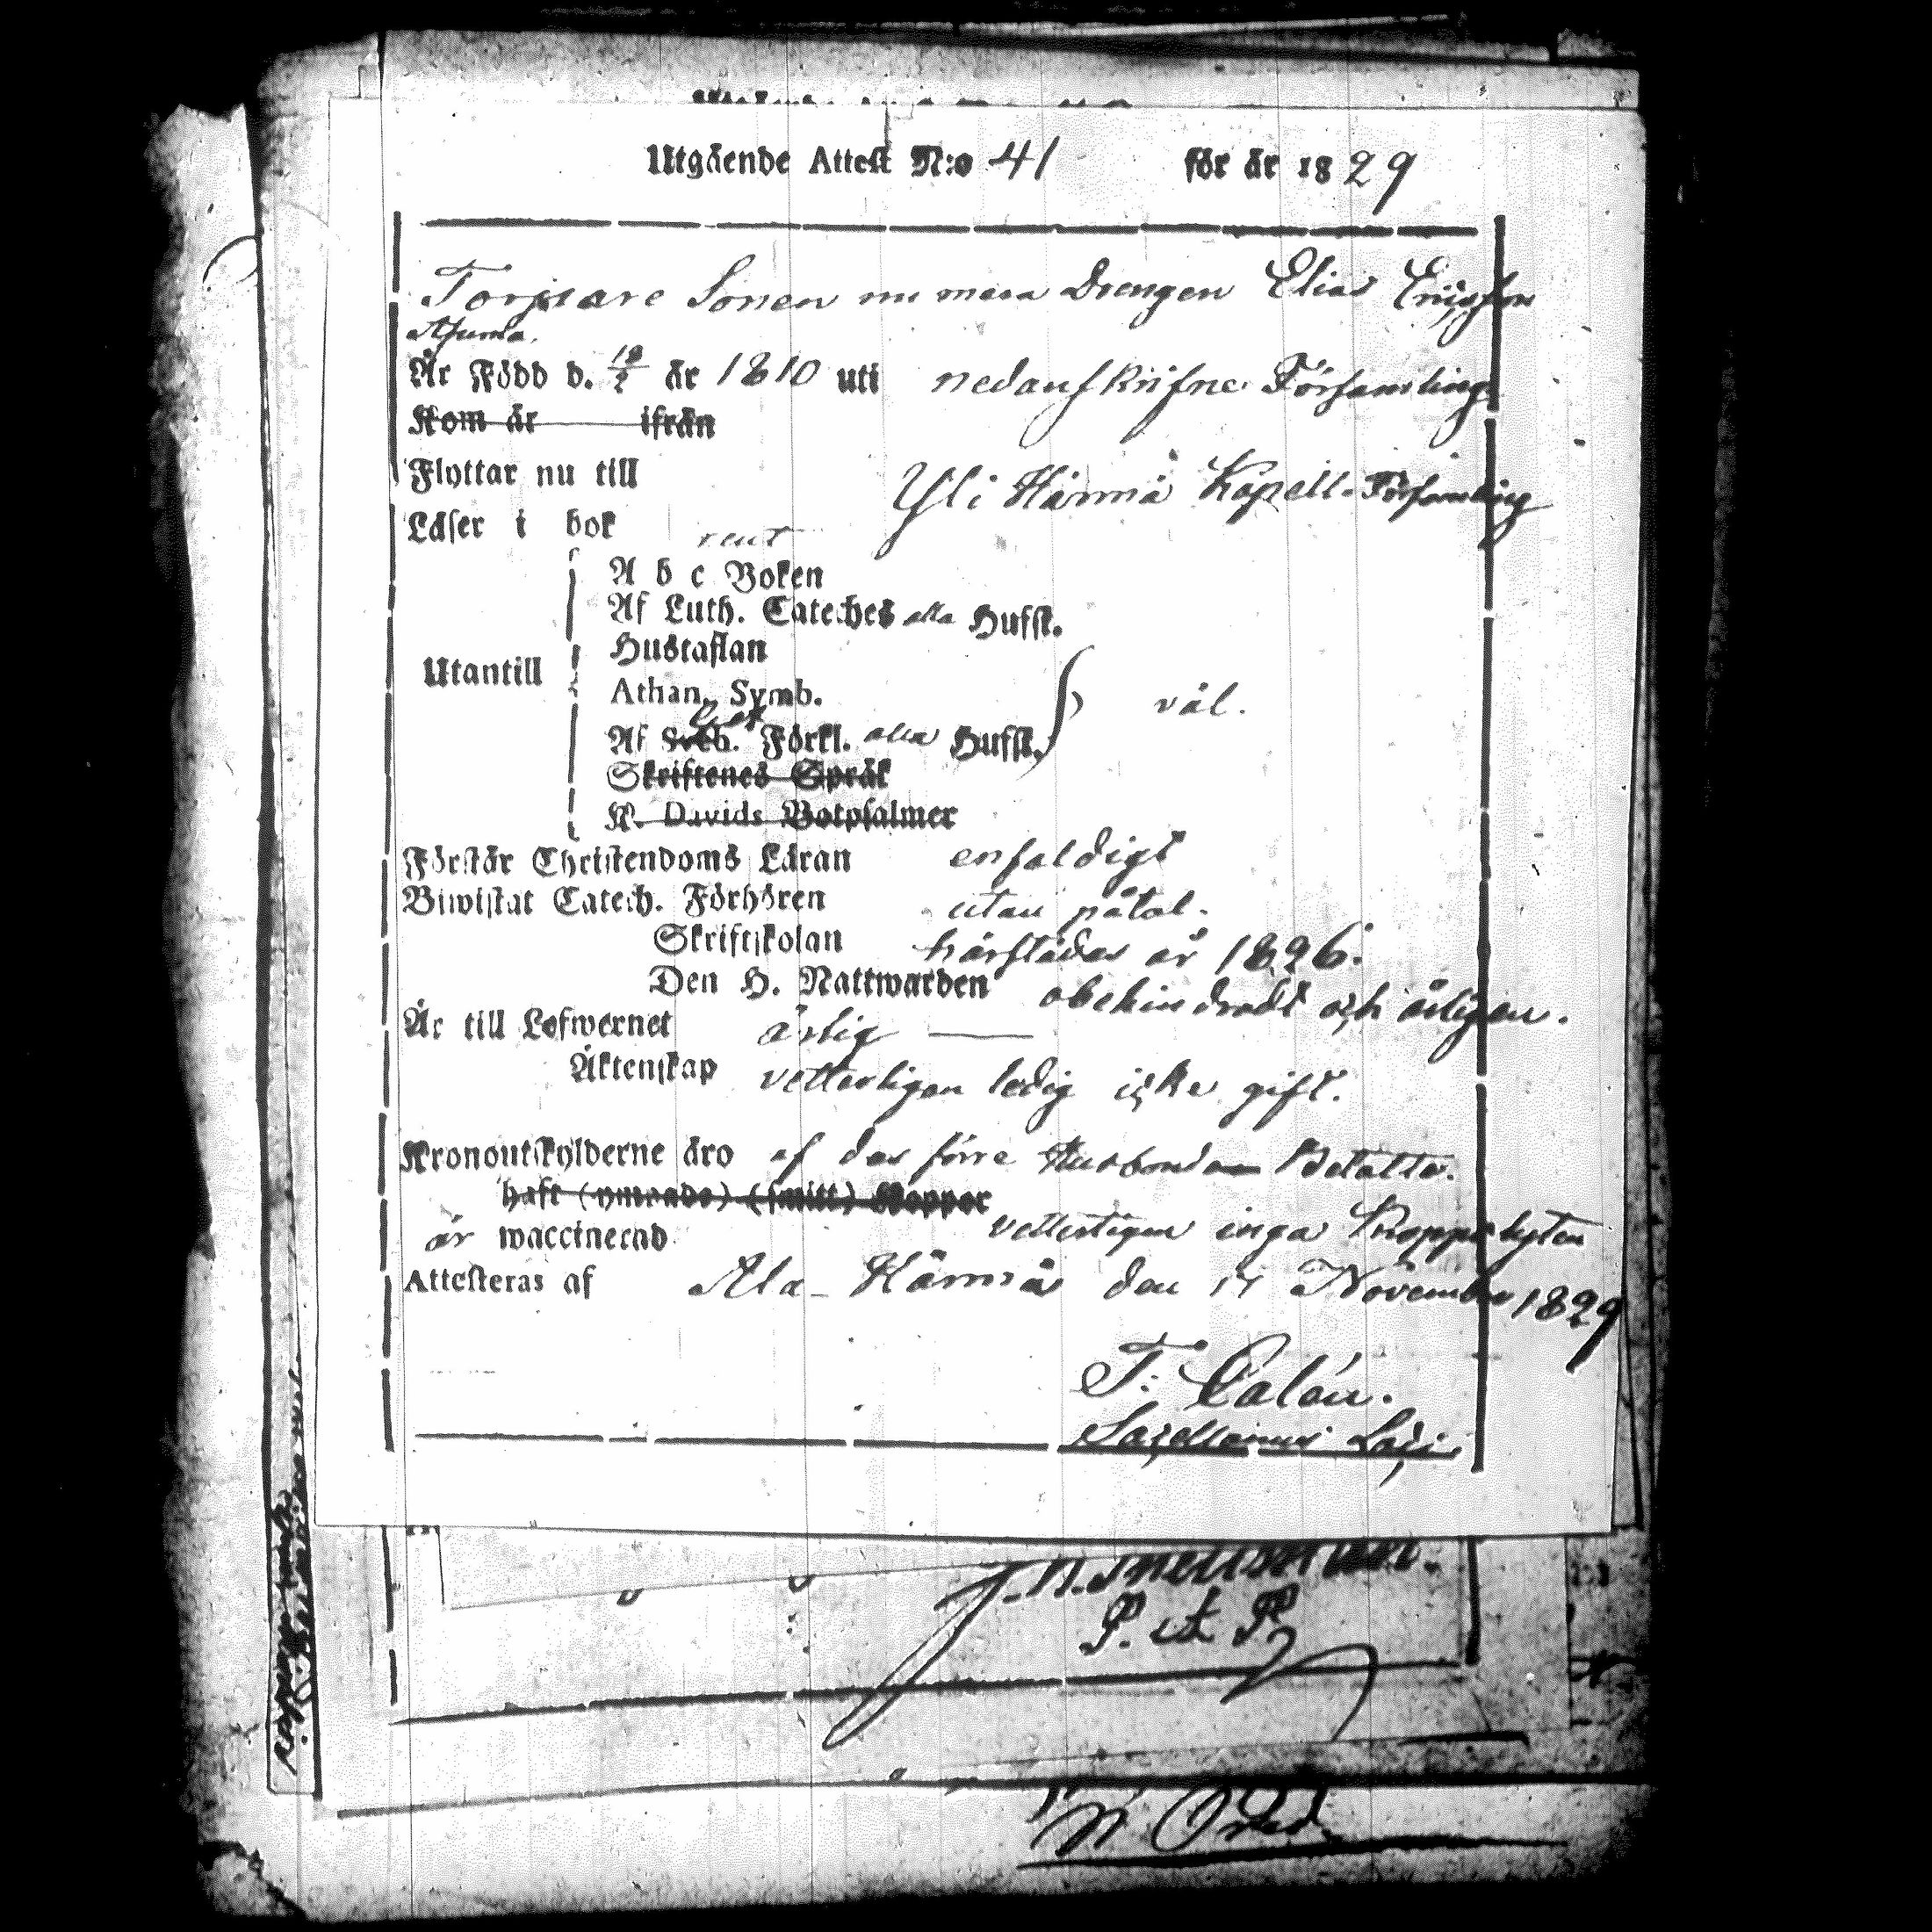 Utgående Attest N:o 41 för år 1829
Torpare Sonen nu mera Drengen Elias Ericsson
Är Född d. 18/2 år 1810 uti nedanskrifne Församling
Kom år ifrån
Flyttar nu till Yli Härmä Kapell-Församling
Läser i bok rent
A b c Boken
Af Luth. Cateches alla Hufst.
Hustaflan
Utantill
Athan. Symb. väl.
Af Sveb. Förkl. alla Hufst.
Skriftenes Språk
K. Davids Botpsalmer
Förstår Christendoms Läran enfaldigt
Biwistat Catech. Förhören utan påtal.
Skriftskolan härstädes år 1826.
Den H. Nattwarden obehindradt och årligen.
Är till Lefwernet ärlig
Äktenskap vetterligen ledig icke gift.
Kronoutskylderne äro af des förre Husbonde Betalte.
haft (ympade) (smitt) Koppor
är waccinerad vetterligen inga Kroppslyten
Attesteras af Ala-Härmä den 14 November 1829
Sacellanus Loci
P. et P.